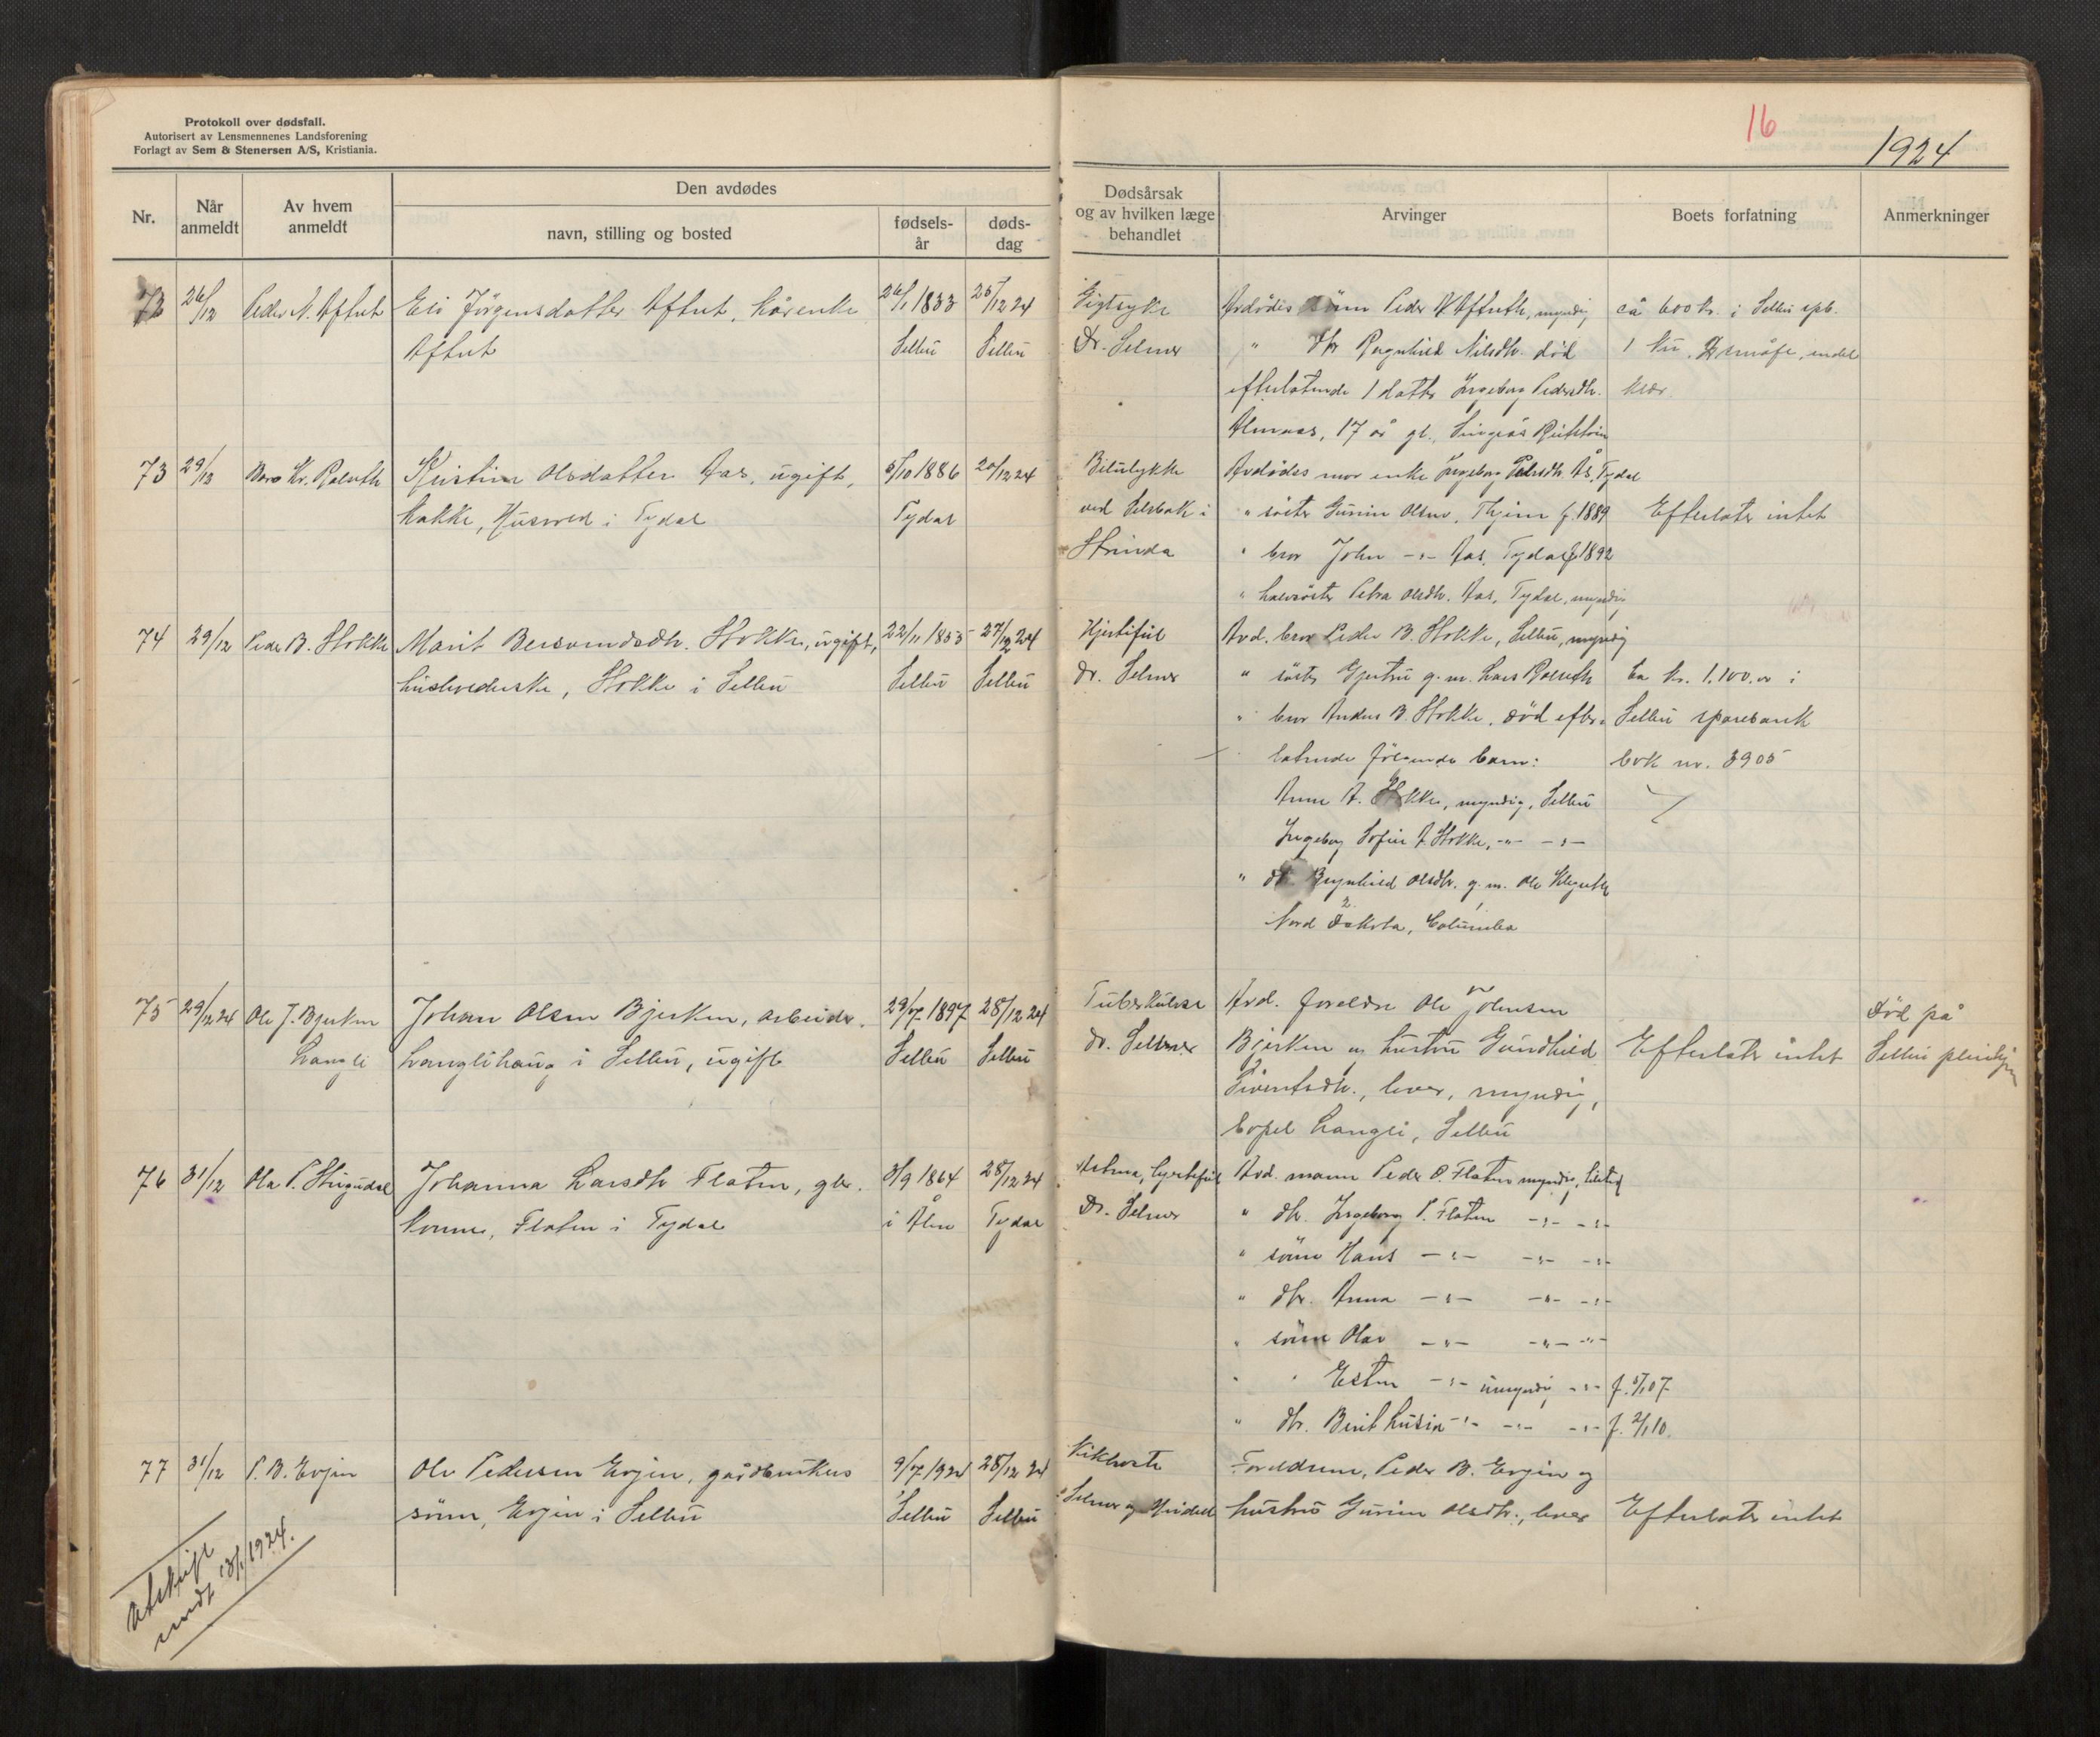 Protokoll over dødsfall.
Autorisert av Lensmennenes Landsforening
Forlagt av Sem & Stenersen A/S, Kristiania.
16
1924
Nr.
Når anmeldt
Av hvem anmeldt
Den avdødes
navn, stilling og bosted
fødsels-år
døds-dag
Dødsårsak og av hvilken læge behandlet
Arvinger
Boets forfatning
Anmerkninger
72 26/12 Peder N. Aftret Eli Jörgensdatter Aftret, kårenke 26/1 1833 25/12 24
Aftret Selbu Selbu
Gigtsyke Avdödes sönn Peder N Aftreth, myndig ca 600 kr. i Selbu spb.
Dr. Selmer " dtr Ragnhild Nilsdtr. död 1 ku, småfe, endel
efterlatende 1 datter Ingeborg Pedersdtr. klær.
Almaas, 17 år gl.
73 29/12 Kr. Rolseth Kristine Olsdatter Aas, ugift, 5/10 1886 20/12 24
kokke, i Tydal Tydal
Bilulykke Avdödes mor enke Ingeborg Ås, Tydal
ved Selsbak i " söster Gurine Olsen, Thjem f. 1889 Efterlater intet
Strinda " bror John -"- Aas, Tydal f 1892
" halvsöster Petra Olsdtr. Aas, Tydal, myndig
74 29/12 Peder B. Stokke Marit Bersvendsdtr. Stokke, ugift, 22/11 1855 27/12 24
husholderske, Stokke i Selbu Selbu Selbu
Hjertefeil Avd. bror Peder B. Stokke, Selbu, myndig
Dr. Selmer " söster Gjertru g. m. Lars Rolseth ca kr. 1.100.00 i
" bror Anders B. Stokke, död efter- Selbu sparebank
latende fölgende barn: bok nr. 3905
Anne A. Stokke, myndig, Selbu
Ingeborg Sofie A. Stokke, -"- -"-
" Ragnhild Olsdtr. g. m. Ole
Nord Dakota, Columbia
75 29/12 24 Ole J. Bjerken Johan Olsen Bjerken, arbeider, 29/7 1897 28/12 24
Langli Langlihaug i Selbu, ugift Selbu Selbu
Tuberkulose Avd. foreldre Ole Johnsen Död på
Dr. Selmer Bjerken og hustru Gundhild Efterlater intet Selbu pleiehjem
Sivertsdtr., lever, myndig,
bopel Langli, Selbu
76 31/12 Ola P. Stugudal Johanna Larsdtr Flaten, gbr. 3/9 1864 28/12 24
kone, Flaten i Tydal i Ålen Tydal
Astma, hjertefeil Avd. mann Peder O. Flaten myndig,
Dr. Selmer " dtr. Ingeborg P. Flaten -"- -"-
" sönn Hans -"- -"- -"-
" dtr. Anna -"- -"- -"-
" sönn Olav -"- -"- -"-
" " Esten -"- umyndig -"- f. 5/1 07
" dtr. Berit Lusie -"- -"- -"- f. 2/1 10.
77 31/12 P. B. Evjen Ole Pedersen Evjen, gårdbrukers 9/7 1924 28/12 24
sönn, Evjen i Selbu Selbu Selbu
Kikhoste Foreldrene, Peder B. Evjen og
Selmer og hustru Gurine Olsdtr., lever Efterlater intet
Utskrift
sendt 13/1 1924.